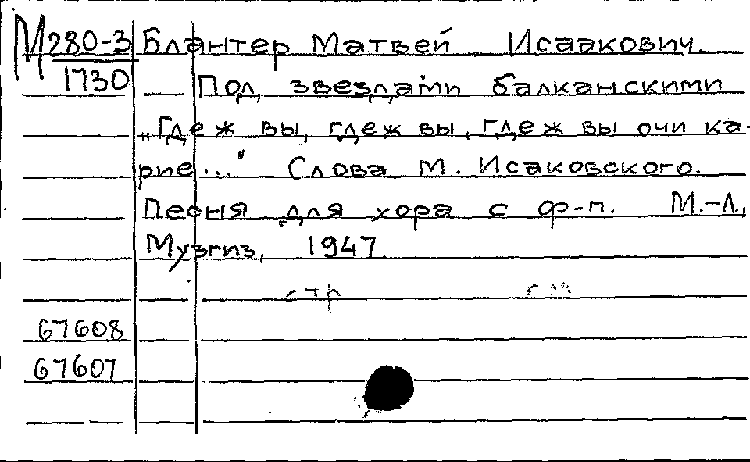 М 280-3 Блантер Матвей Исаакович.
1730 Под звездами балканскими
„Где ж вы, где ж вы, где ж вы очи ка-
рие..." Слова М. Исаковского.
Песня для хора с ф-п. М.-Л.,
Музгиз, 1947.
стр см
67608
67607